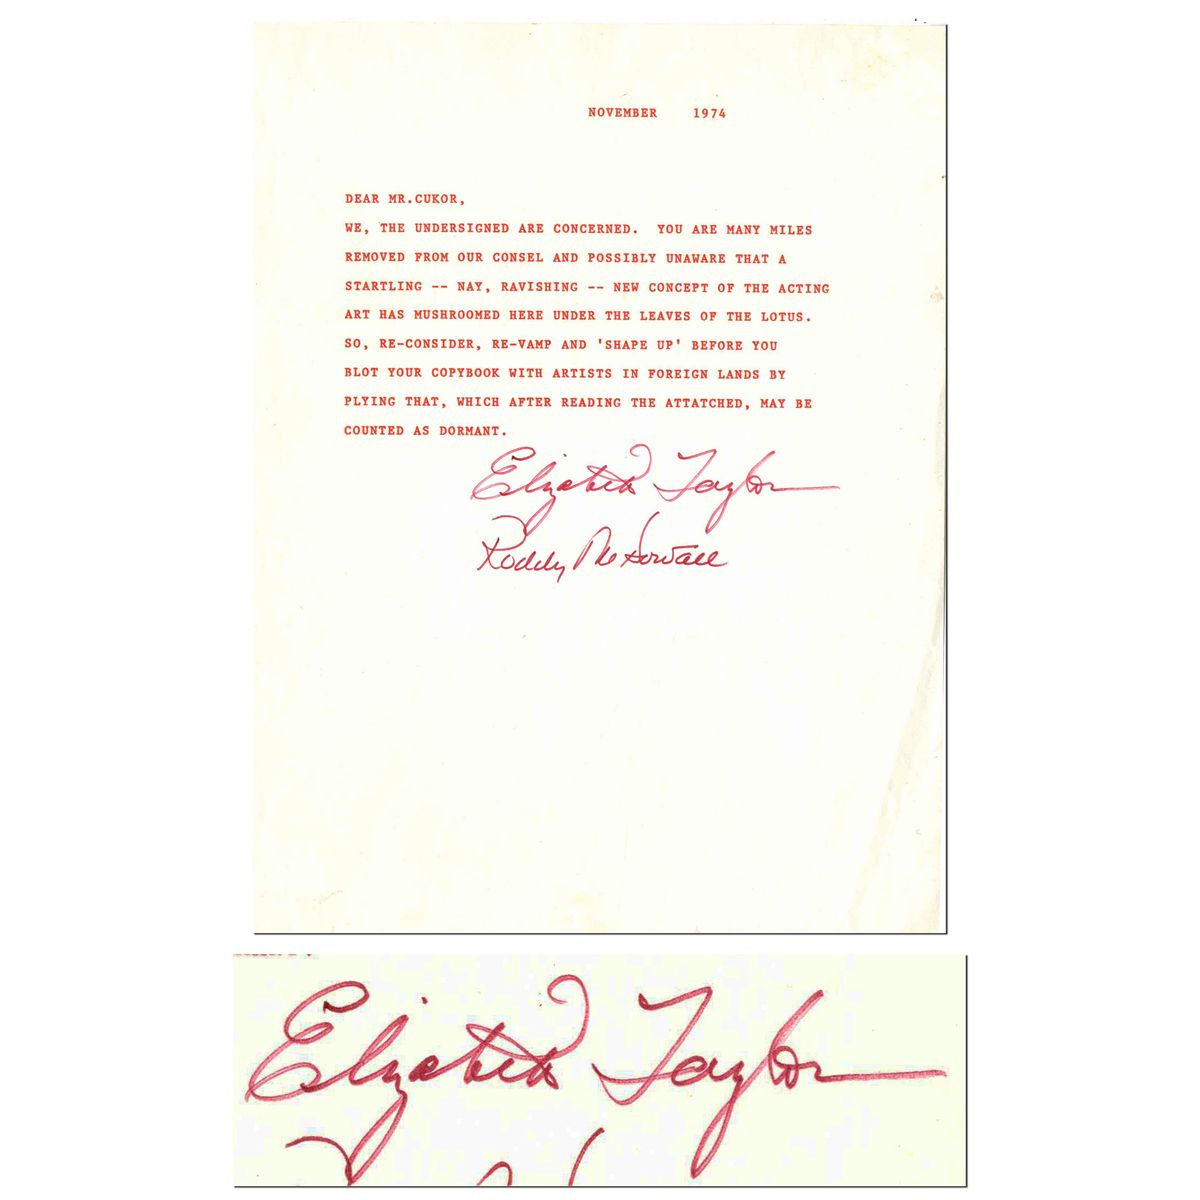 NOVEMBER 1974
DEAR MR.CUKOR,
WE, THE UNDERSIGNED ARE CONCERNED. YOU ARE MANY MILES
REMOVED FROM OUR CONSEL AND POSSIBLY UNAWARE THAT A
STARTLING -- NAY, RAVISHING -- NEW CONCEPT OF THE ACTING
ART HAS MUSHROOMED HERE UNDER THE LEAVES OF THE LOTUS.
SO, RE-CONSIDER, RE-VAMP AND 'SHAPE UP' BEFORE YOU
BLOT YOUR COPYBOOK WITH ARTISTS IN FOREIGN LANDS BY
PLYING THAT, WHICH AFTER READING THE ATTATCHED, MAY BE
COUNTED AS DORMANT.
Elizabeth Taylor
Roddy McDowall
Elizabeth Taylor